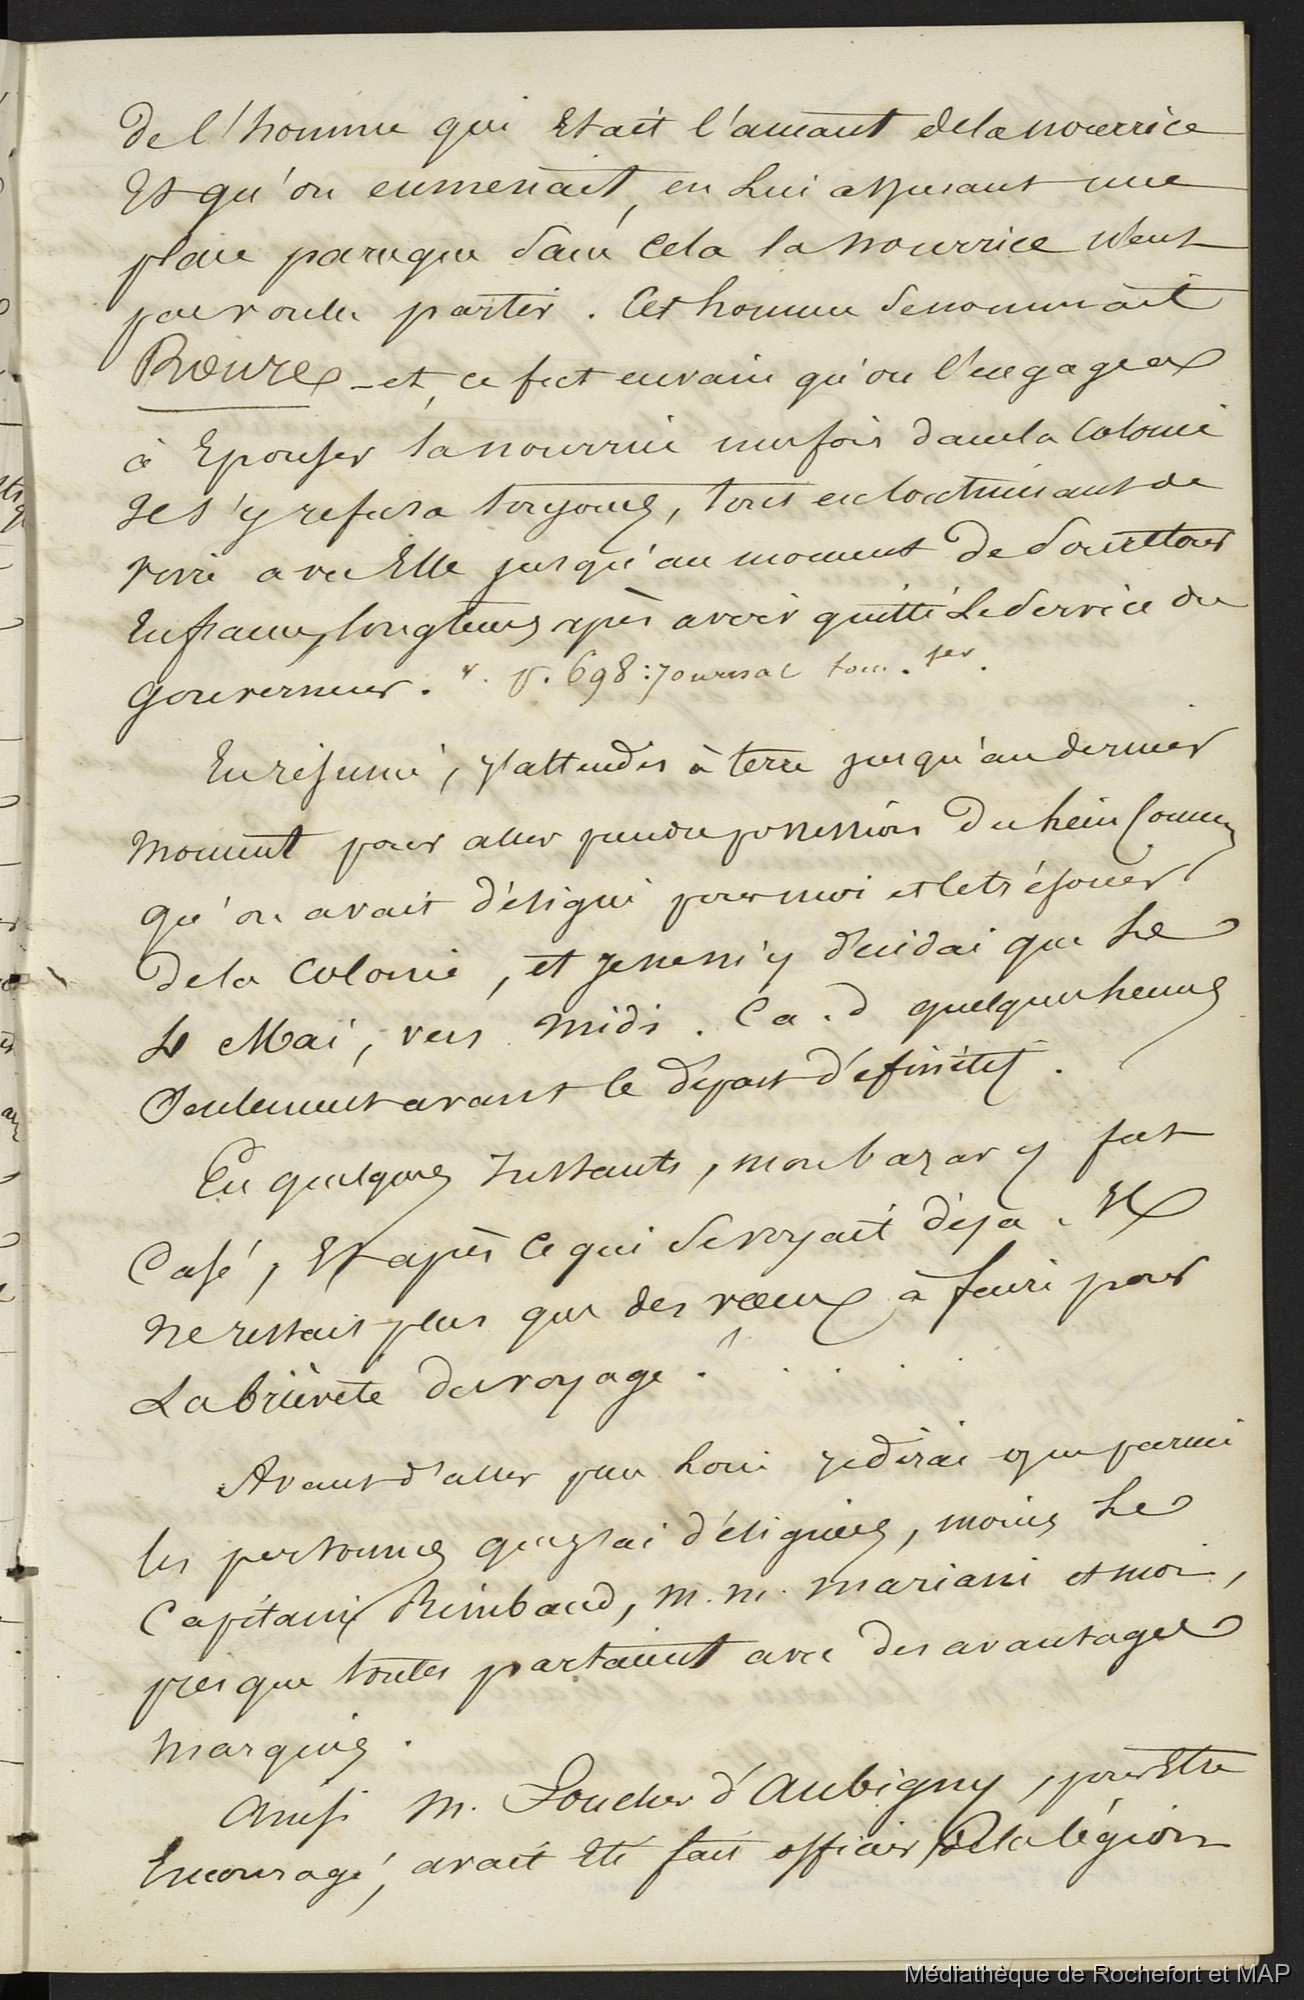 de l'homme qui Etait l'amant dela nourrice
Et qu'on emmenait, en Lui assurant une
place parceque sans Cela la Nourrice n'eut
pas voulu partir. Cet homme se nommait
Roeure - et, ce fut envain qu'on l'engagea
à Epouser la nourrice une fois dans la Colonie
Il s'y refusa toujours, tout en continuant de
vivre avec Elle jusqu'au moment de son retour
En france, longtems après avoir quitté Le Service du
gouverneur. v. p. 698: journal tom. 1er.
En résumé, j'attendis à terre jusqu'au dernier
moment pour aller prendre possession du lieu Commun
qu'on avait désigné pour moi et le trésorier
de la Colonie, et je ne m'y décidai que Le
Mai, vers midi. C. a. d quelques heures
Seulement avant le départ définitif.
En quelques Instants, mon bazar y fut
Casé, Et après ce qui se voyait déja. Il
ne restait plus que des vœux à faire pour
La brièveté du voyage.
Avant d'aller plus Loin je dirai que parmi
les personnes que j'ai désignées, moins Le
Capitaine Rimbaud, m. m. mariani et moi,
presque toutes partaient avec des avantages
marqués.
Ainsi m. Foucher d'Aubigny, pour Etre
Encouragé, avait Eté fait officier de la légion
Médiathèque de Rochefort et MAP